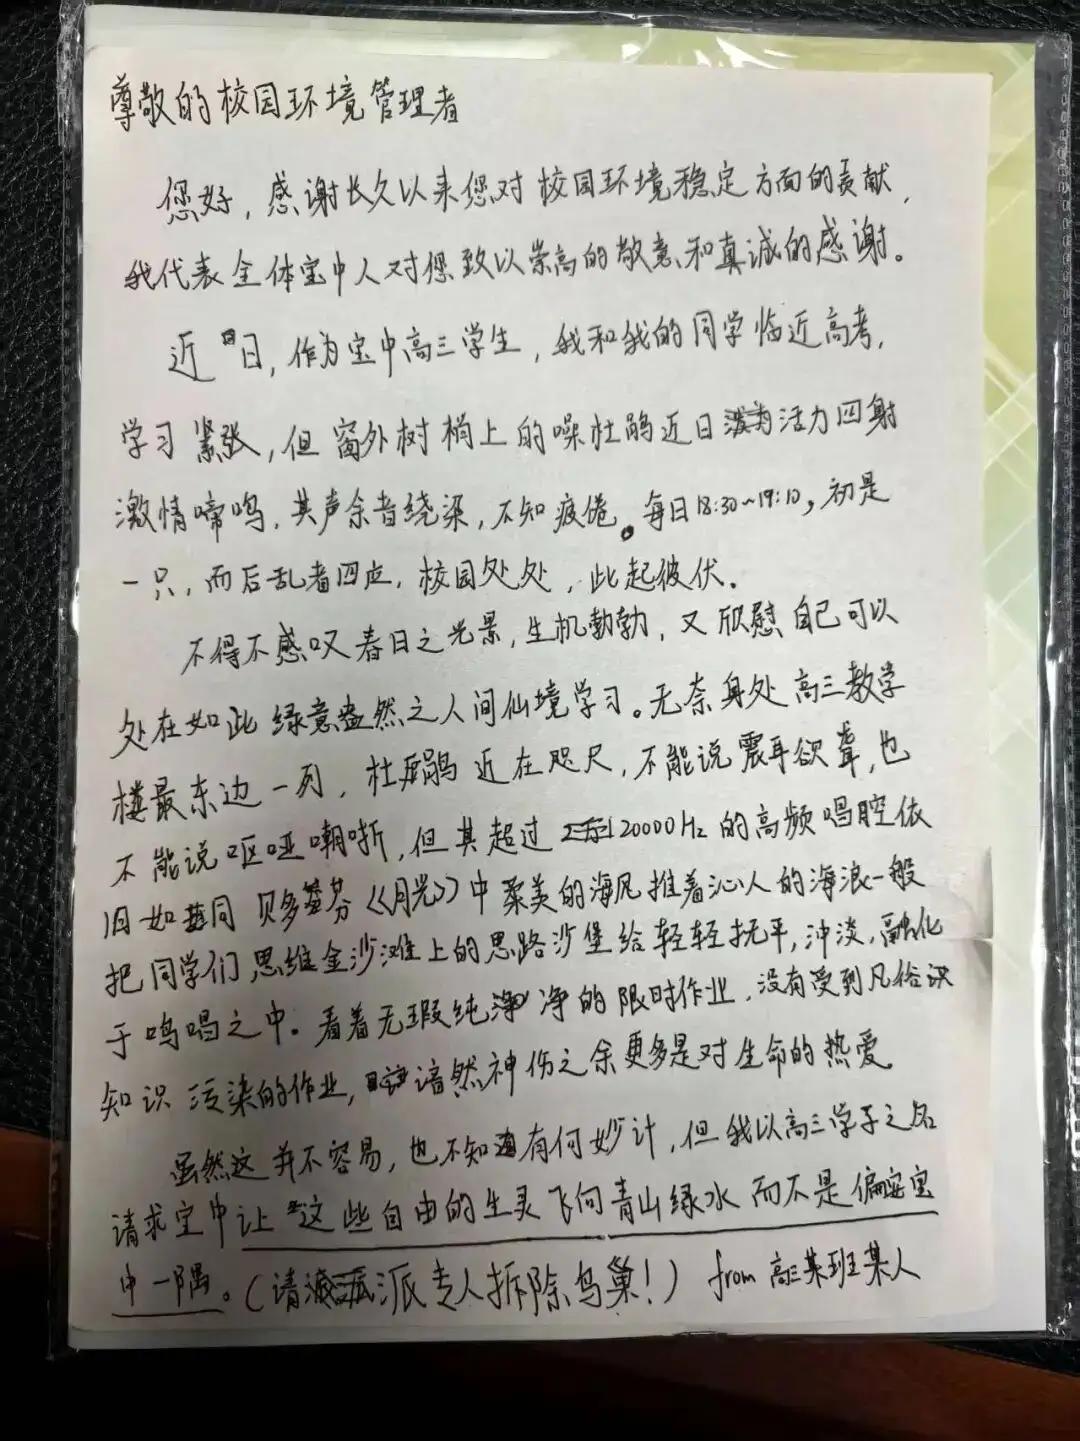 尊敬的校园环境管理者
您好，感谢长久以来您对校园环境稳定方面的贡献，
我代表全体宝中人对您致以崇高的敬意和真诚的感谢。
近日，作为宝中高三学生，我和我的同学临近高考，
学习紧张，但窗外树梢上的噪杜鹃近日活力四射
激情啼鸣，其声余音绕梁，不知疲倦。每日18:30~19:10，初是
一只，而后乱者四应，校园处处，此起彼伏。
不得不感叹春日之光景，生机勃勃，又欣慰自己可以
处在如此绿意盎然之人间仙境学习。无奈身处高三教学
楼最东边一列，杜鹃近在咫尺，不能说震耳欲聋，也
不能说呕哑嘲哳，但其超过20000Hz的高频唱腔依
旧如同贝多芬《月光》中柔美的海风推着沁人的海浪一般
把同学们思维金沙滩上的思路沙堡给轻轻抚平，冲淡，融化
于鸣唱之中。看着无瑕纯净的限时作业，没有受到凡俗识
知识污染的作业，谙然神伤之余更多是对生命的热爱
虽然这并不容易，也不知有何妙计，但我以高三学子之名
请求宝中让这些自由的生灵飞向青山绿水而不是偏安宝
中一隅。（请派专人拆除鸟巢！）from高三某班某人